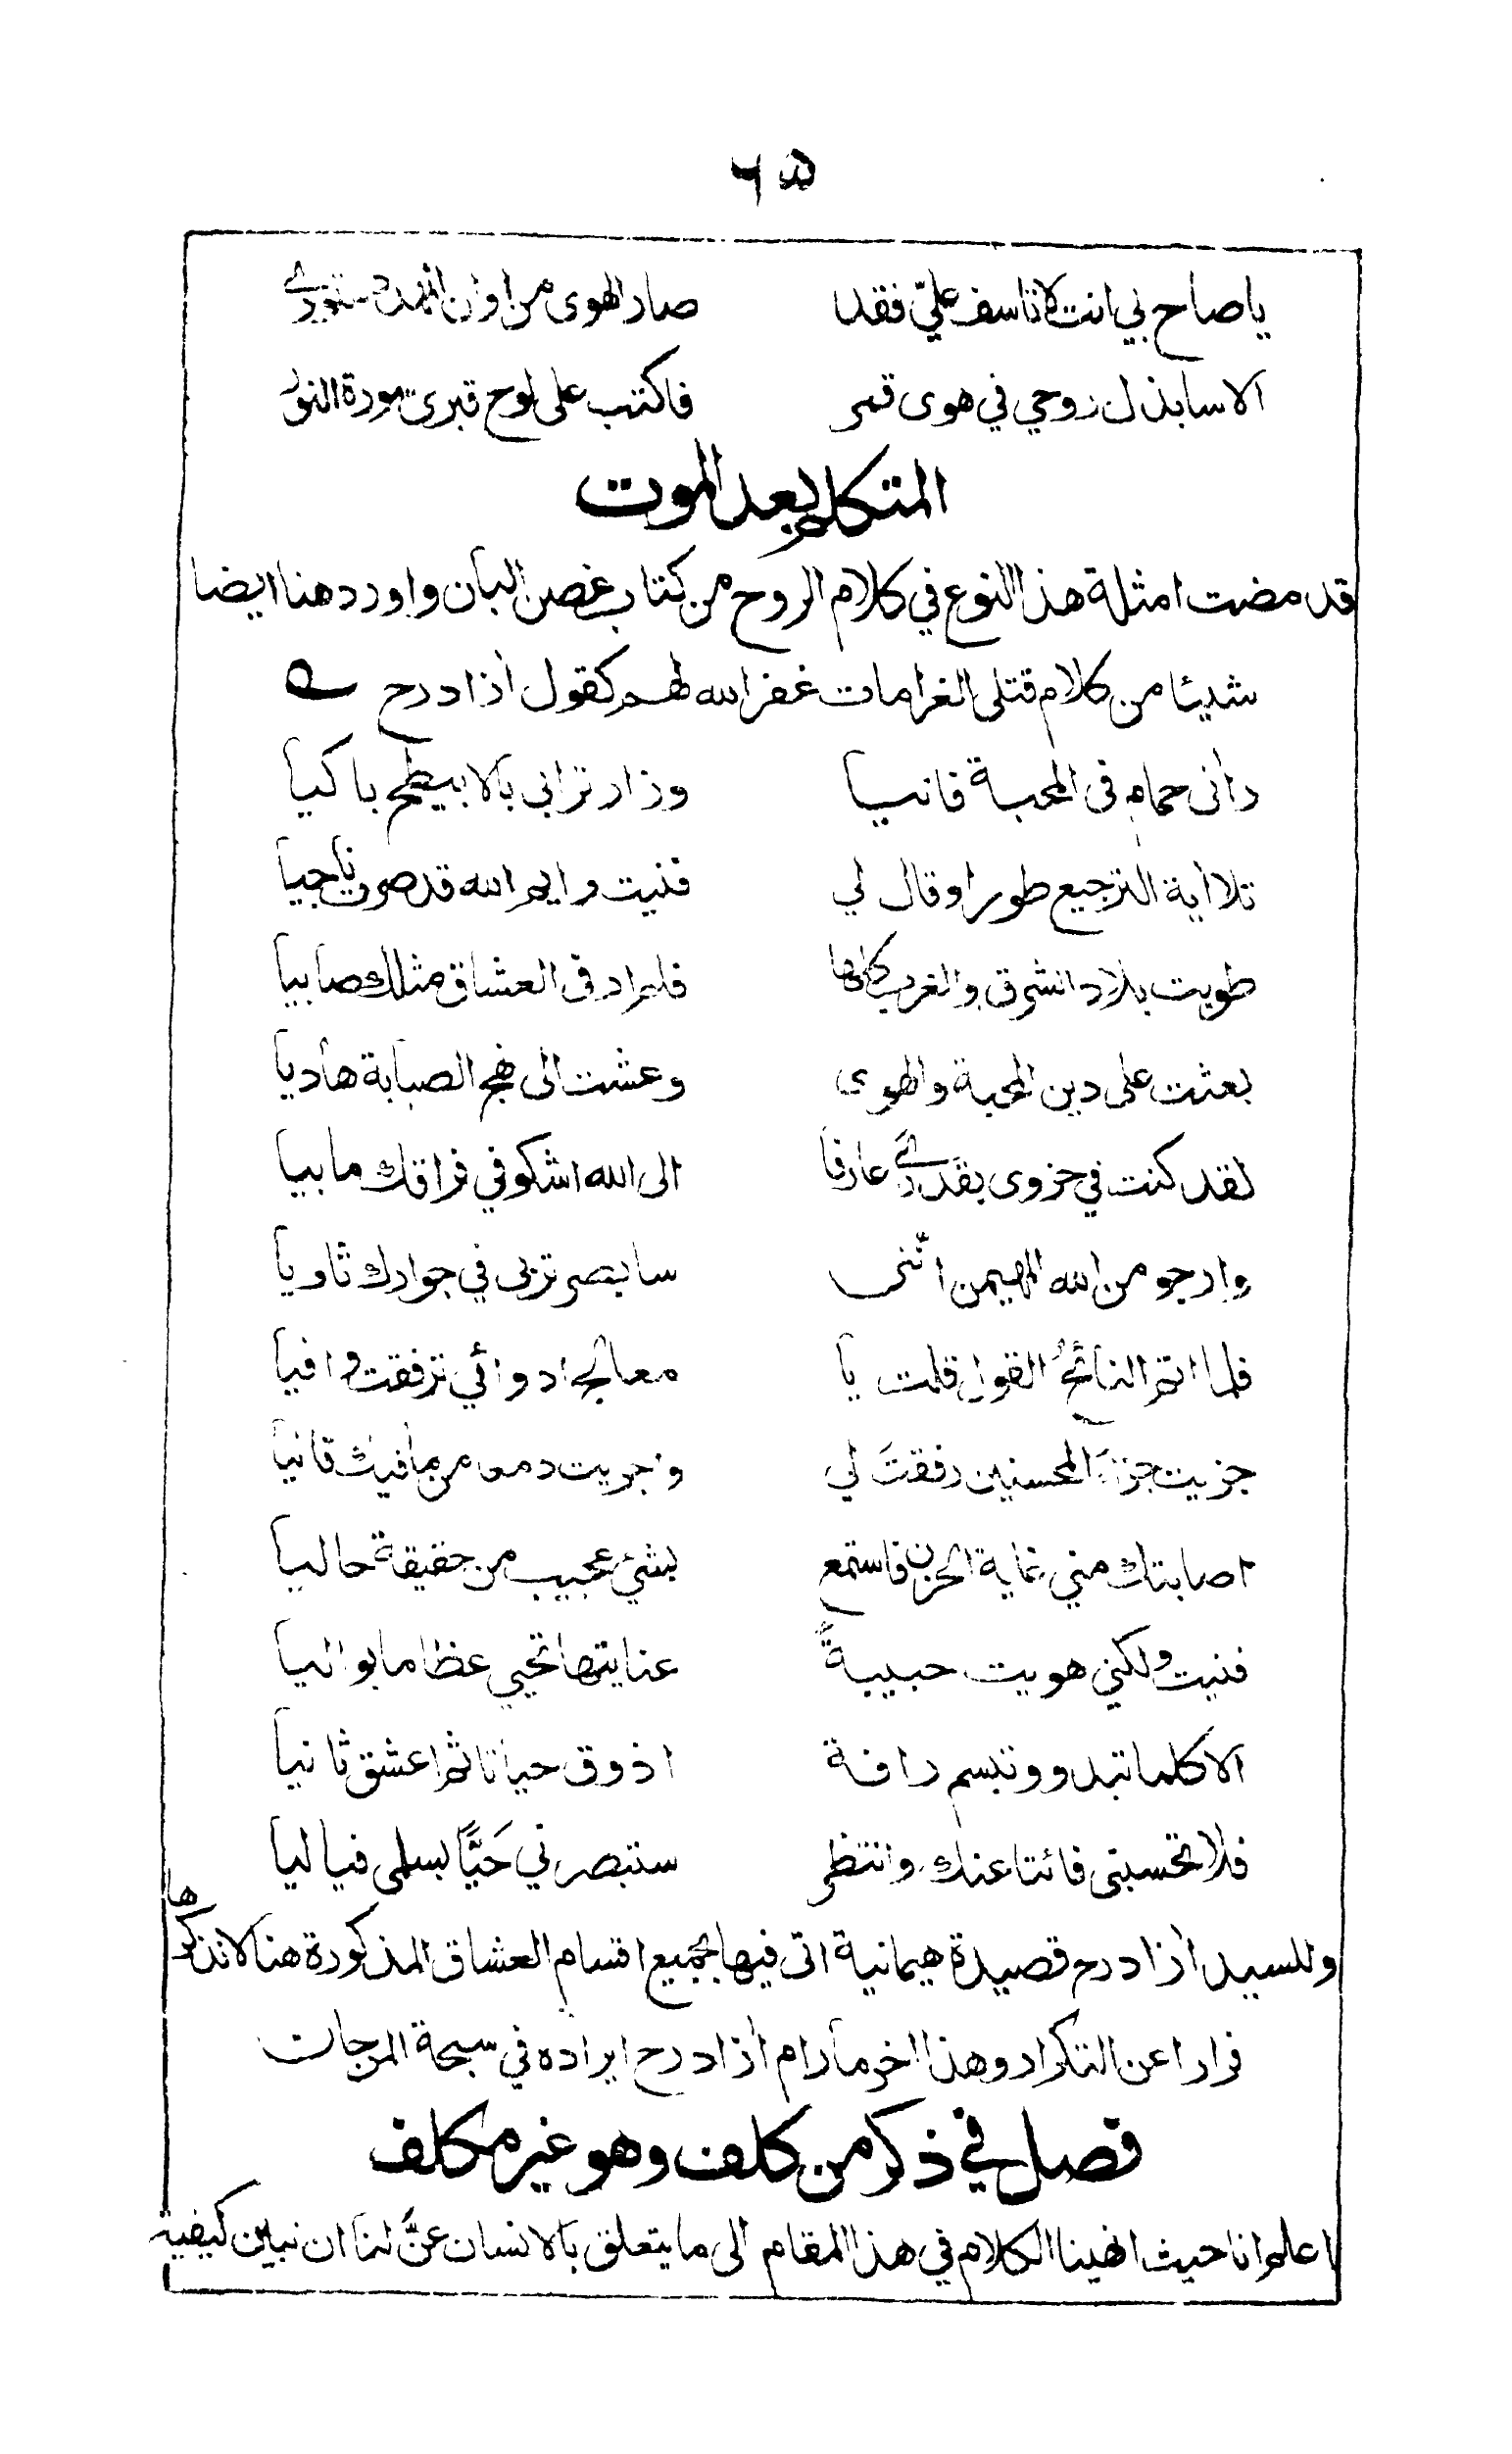 ٦٥
ياصاح بي انت لاتاسف عليّ فقد صار الهوى من اوان المهد
الاسابذل روحي في هوى قمر فاكتب على لوح قبري سورة النور
المتكلم بعد الموت
قد مضت امثلة هذا النوع في كلام الروح من كتاب غصن البان واورد هنا ايضا
شيئا من كلام قتلى الغرامات غفر الله لهم كقول اٰزاد رح
راٰنى حمام فى المحبة فانيا وزار ترابى بالابيطح باكيا
تلا اٰية الترجيع طورا وقال لي فنيت وايم الله قد صرت ناجيا
طويت بلاد الشرق والغرب كلها فلم ار فى العشاق مثلك صابيا
بعثت على دين المحبة والهوى وعشت الى نهج الصبابة هاديا
لقد كنت في حزوى بقدري عارفا الى الله اشكو في فراقك مابيا
وارجو من الله المهيمن انّني سابصر تربى في جوارك ثاويا
فلما اتم النائحُ القول قلت يا معالج ادوائي ترفقت وافيا
جزيت جزاءَ المحسنين رفقتَ لي واجريت دمعا من ماٰقيك قانيا
اصابتك مني غاية الحزن فاستمع بشئ عجيب من حقيقة حاليا
فنيت ولكني هويت حبيبةً عنايتها تحيي عظاما بواليا
الا كلما تبدو وتبسم رافة اذوق حياتا ثم اعشق ثانيا
فلا تحسبنى فائتا عنك وانتظر ستبصرني حَيًّا بسلمى فياليا
وللسيد اٰزاد رح قصيدة هيمانية اتى فيها بجميع اقسام العشاق المذكورة هنا لانذكرها
فرارا عن التكرار وهذا اٰخر ما رام اٰزاد رح ايراده في سبحة المرجان
فصل في ذكر من كلف وهو غير مكلف
اعلم انا حيث انهينا الكلام في هذا المقام الى ما يتعلق بالانسان عنَّ لنا ان نبين كيفية